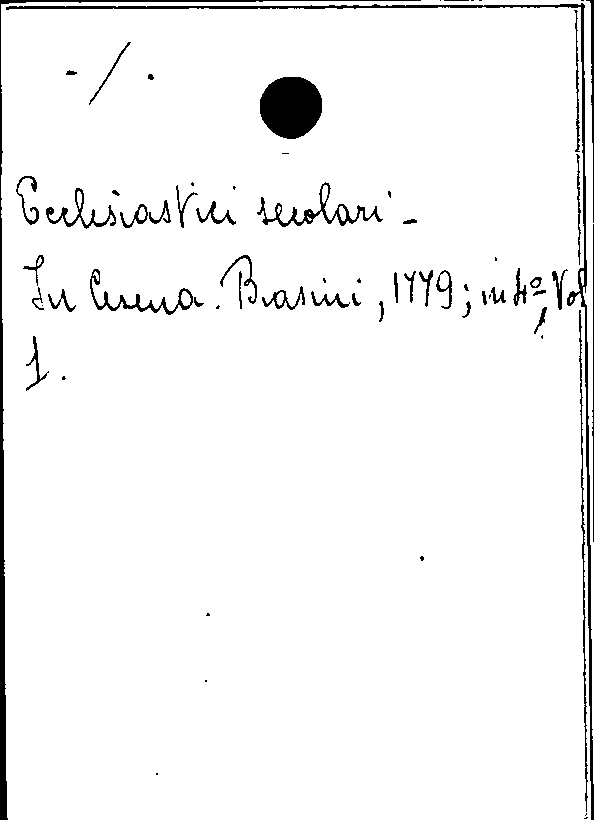 - / .
Ecclesiastici secolari -
In Cesena. Biasini, 1779; in 4º, Vol
1.